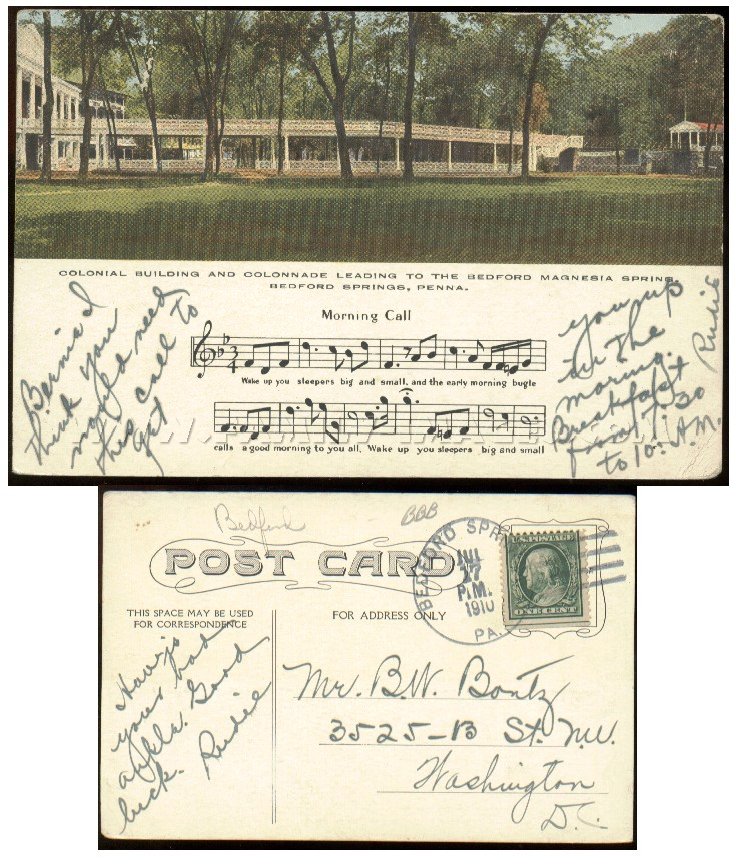 COLONIAL BUILDING AND COLONNADE LEADING TO THE BEDFORD MAGNESIA SPRING,
BEDFORD SPRINGS, PENNA.
Bernie I
think you
would need
this call to
get
Morning Call
Wake up you sleepers big and small, and the early morning bugle
calls a good morning to you all, Wake up you sleepers big and small
you up
in the
morning.
Breakfast
from 7.30
to 10. A.M.
Rudie
Bedford
BBB
POST CARD
THIS SPACE MAY BE USED
FOR CORRESPONDENCE
FOR ADDRESS ONLY
BEDFORD SPRI
JUL
17
P.M.
1910
PA.
U.S. POSTAGE
ONE CENT
How is
your bad
ankle. Good
luck. Rudie
Mr. B.W. Bontz
3525-13 St. N.W.
Washington
D.C.